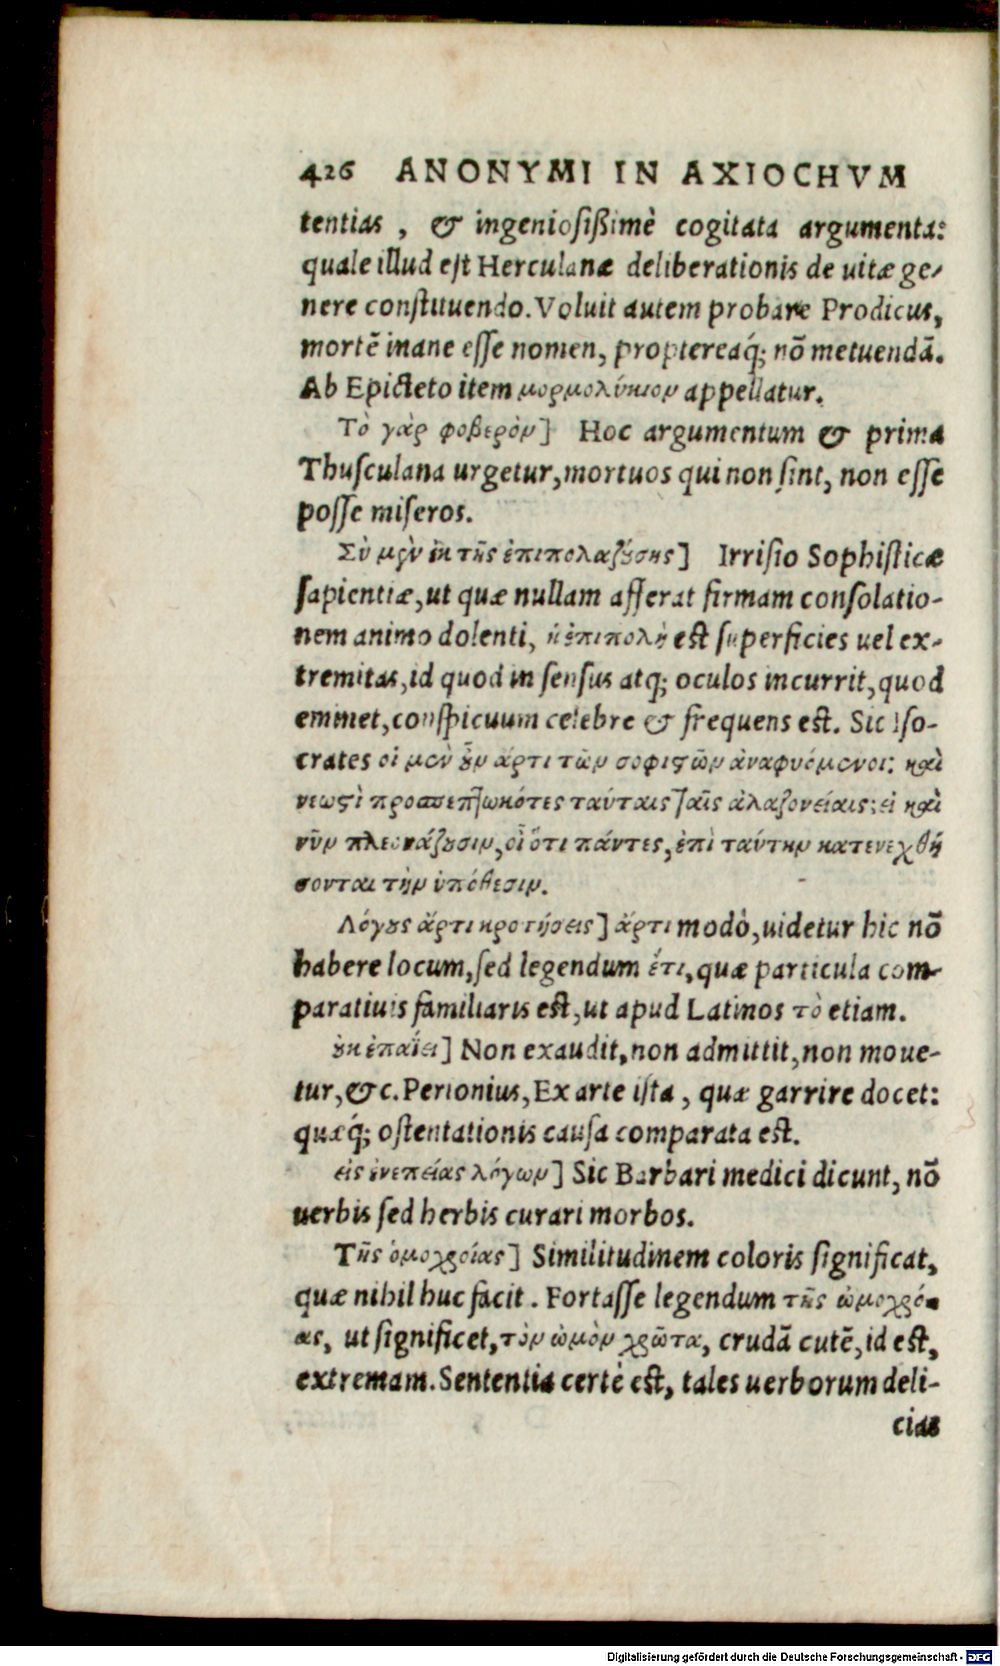 426 ANONYMI IN AXIOCHVM
tentias , & ingeniosißimè cogitata argumenta:
quale illud est Herculanæ deliberationis de uitæ ge-
nere constituendo. Voluit autem probare Prodicus,
mortē inane esse nomen, proptereaq́; nō metuendā.
Ab Epicteto item μορμολύκιον appellatur.
Τὸ γὰρ φοβερὸν] Hoc argumentum & prima
Thusculana urgetur, mortuos qui non sint, non esse
posse miseros.
Σὺ μὲν ἐκ τῆς ἐπιπολαζούσης] Irrisio Sophisticæ
sapientiæ, ut quæ nullam afferat firmam consolatio-
nem animo dolenti, ἡ ἐπιπολὴ est superficies uel ex-
tremitas, id quod in sensus atq; oculos incurrit, quod
eminet, conspicuum celebre & frequens est. Sic Iso-
crates οἱ μὲν οὖν ἄρτι τῶν σοφιστῶν ἀναφυόμενοι: καὶ
νεωστὶ προσπεπτωκότες ταύταις ταῖς ἀλαζονείαις: εἰ καὶ
νῦν πλεονάζουσιν, οἶ ὅτι πάντες, ἐπὶ ταύτην κατενεχθή
σονται τὴν ὑπόθεσιν.
Λόγους ἄρτι κροτήσεις] ἄρτι modò, uidetur hic nō
habere locum, sed legendum ἔτι, quæ particula com-
paratiuis familiaris est, ut apud Latinos τὸ etiam.
οὐκ ἐπαΐει] Non exaudit, non admittit, non moue-
tur, &c. Perionius, Ex arte ista , quæ garrire docet:
quæq́; ostentationis causa comparata est.
εἰς ἐνεπείας λόγων] Sic Barbari medici dicunt, nō
uerbis sed herbis curari morbos.
Τῆς ὁμοχροίας] Similitudinem coloris significat,
quæ nihil huc facit . Fortasse legendum τῆς ὠμοχρό-
ας, ut significet, τὸν ὠμὸν χρῶτα, crudā cutē, id est,
extremam. Sententia certè est, tales uerborum deli-
cias
Digitalisierung gefördert durch die Deutsche Forschungsgemeinschaft - DFG